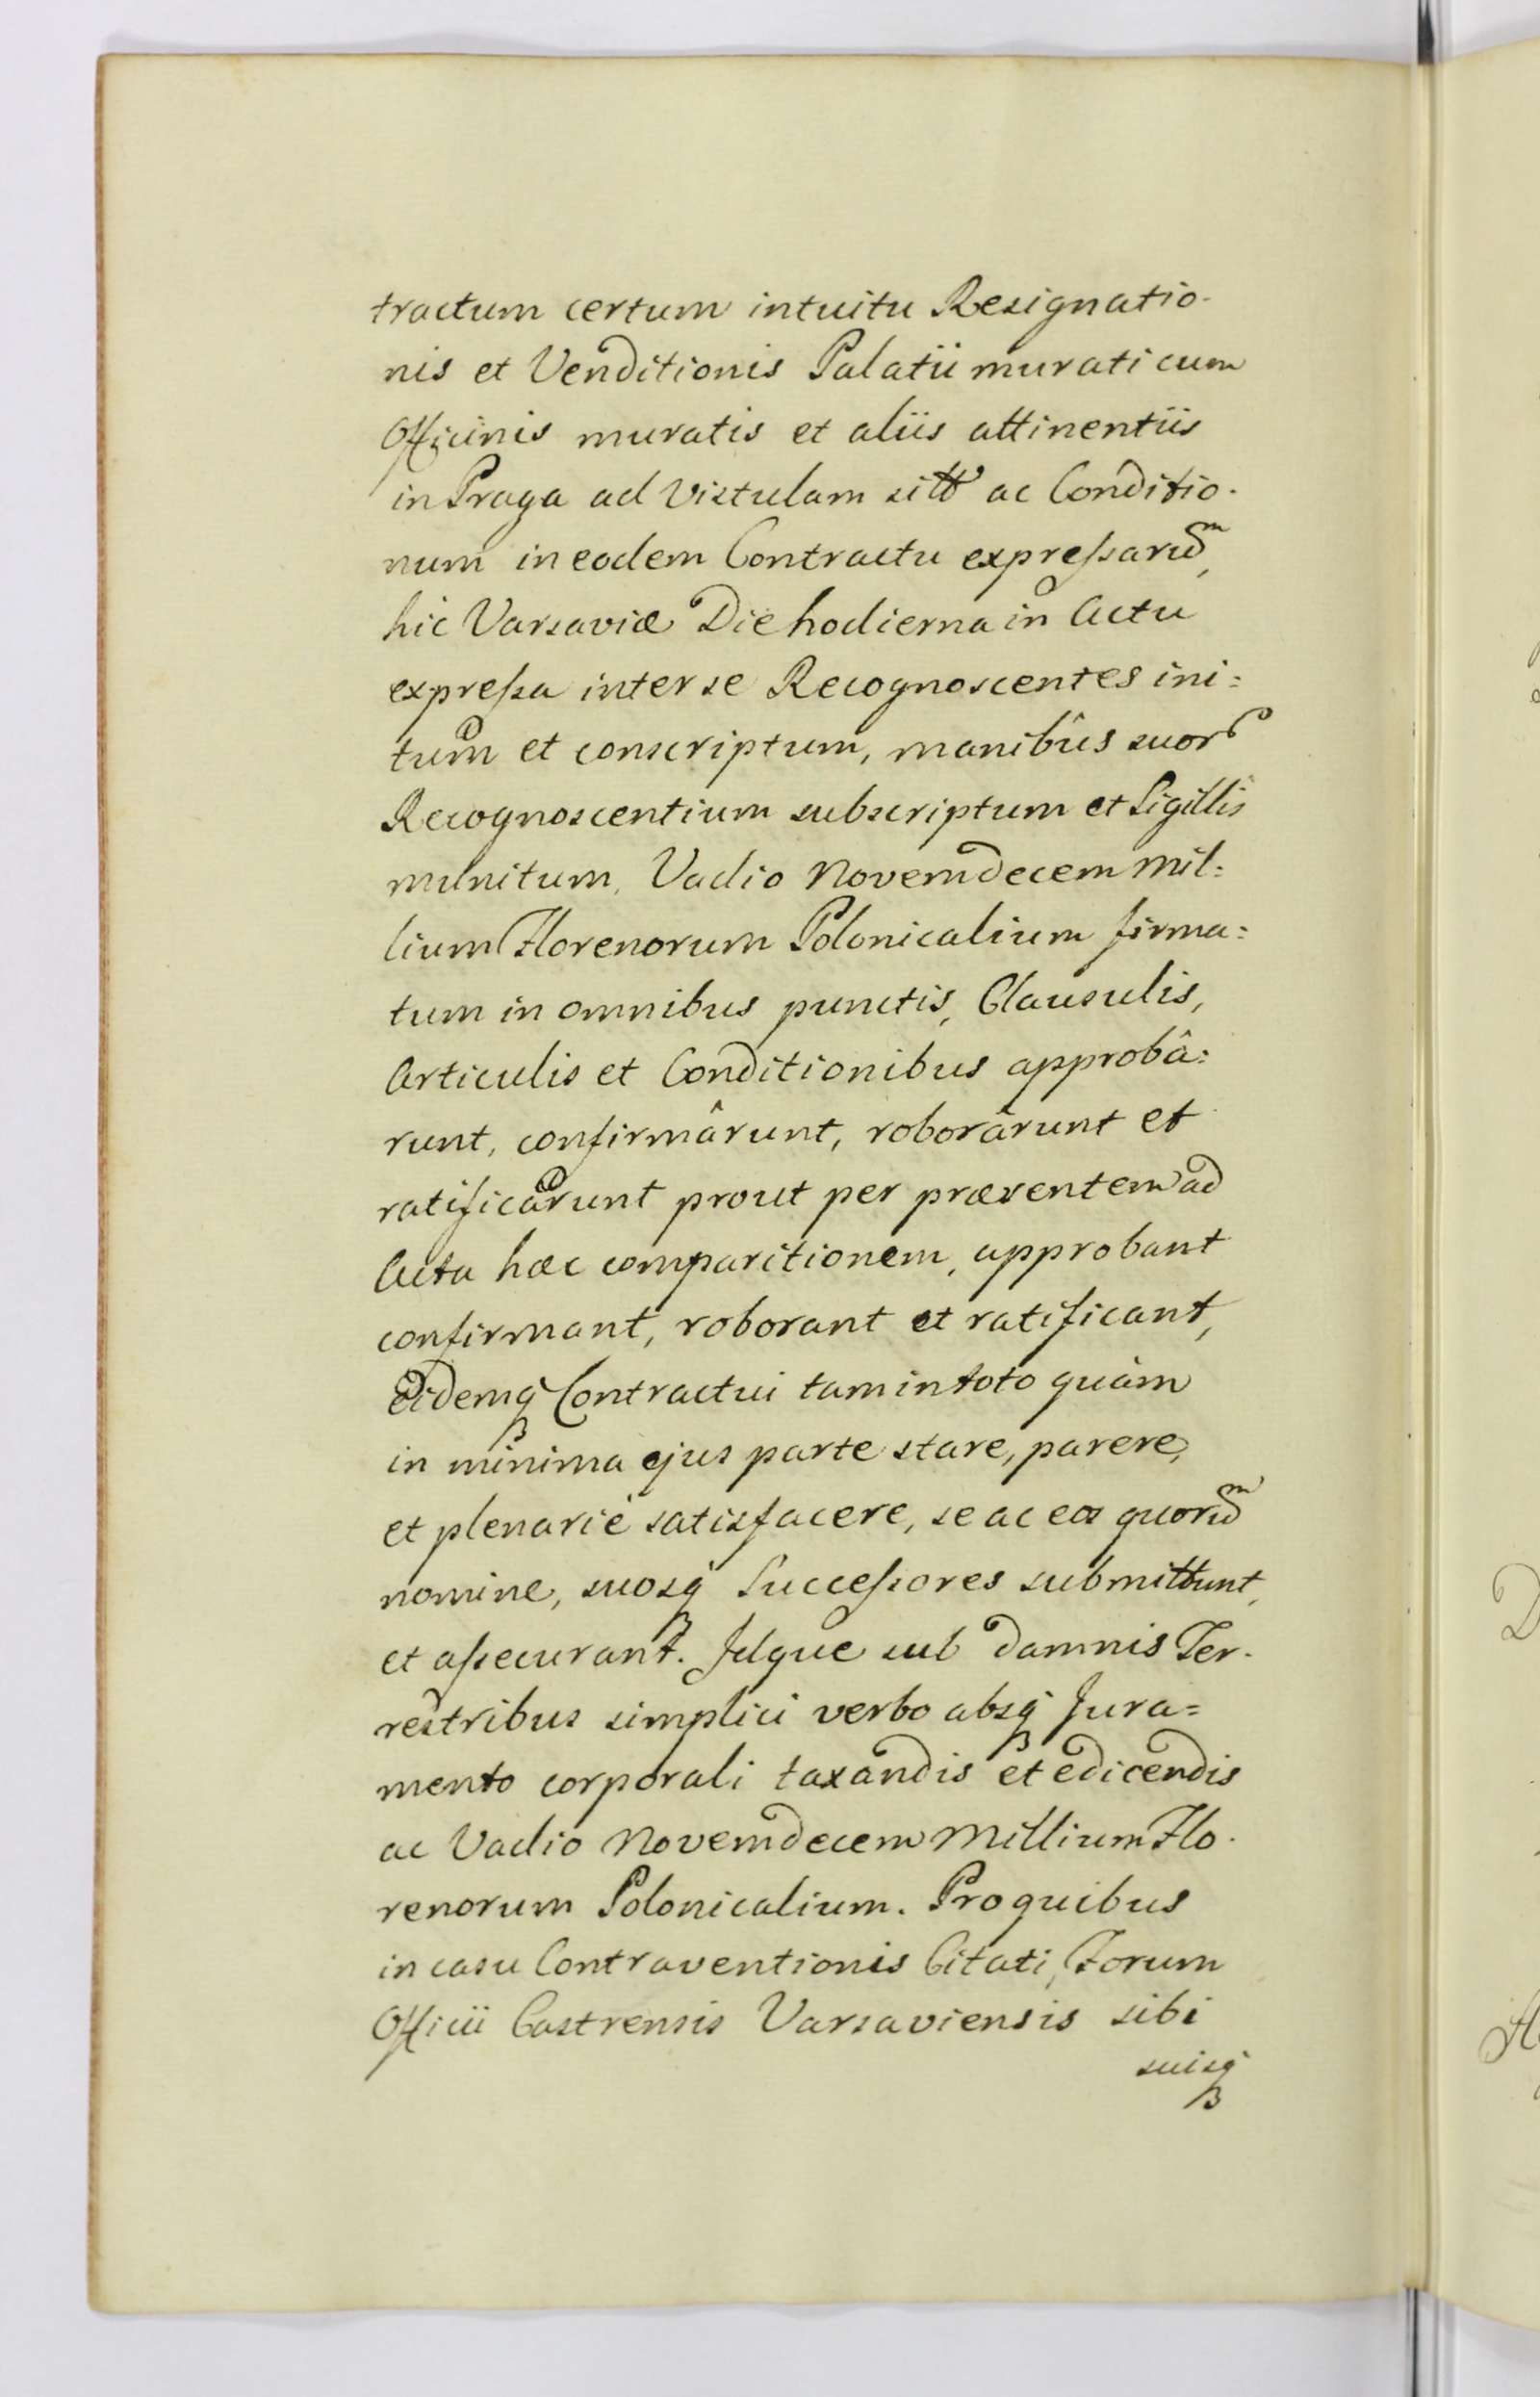 tractum certum intuitu Resignatio-
nis et Venditionis Palatii murati cum
Officinis muratis et aliis attinentiis
in Praga ad Vistulam sitt ac Conditio-
num in eodem Contractu expressarum,
hic Varsaviæ Die hodierna in Actu
expressa inter se Recognoscentes ini=
tum et conscriptum, manibûs suor
Recognoscentium subscriptum et Sigillis
munitum, Vadio Novemdecem Mil=
lium Florenorum Polonicalium firma=
tum in omnibus punctis, Clausulis,
Articulis et Conditionibus approbâ=
runt, confirmârunt, roborârunt et
ratificârunt prout per præsentem ad
Acta hæc comparitionem, approbant
confirmant, roborant et ratificant,
Eidemq Contractui tam in toto quàm
in minima ejus parte stare, parere,
et plenariè satisfacere, se ac eos quorum
nomine, suosq Successores submittunt,
et assecurant. Idque sub damnis Ter-
restribus simplici verbo absq Jura=
mento corporali taxandis et edicendis
ac Vadio Novemdecem Millium Flo-
renorum Polonicalium. Pro quibus
in casu Contraventionis Citati, Forum
Officii Castrensis Varsaviensis sibi
suisq